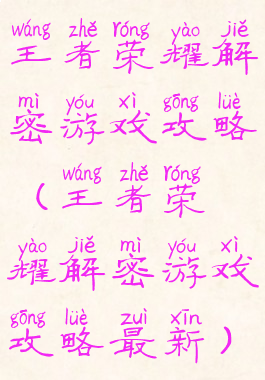 wáng zhě róng yào jiě
王者荣耀解
mì yóu xì gōng lüè
密游戏攻略
wáng zhě róng
(王者荣
yào jiě mì yóu xì
耀解密游戏
gōng lüè zuì xīn
攻略最新)